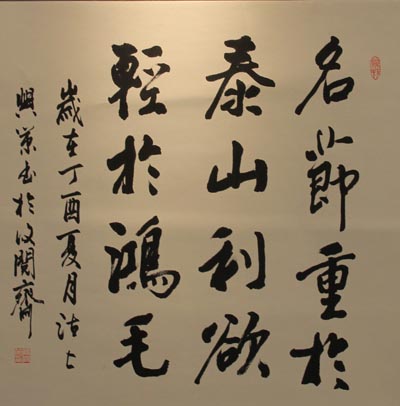 名節重於
泰山利欲
輕於鴻毛
歲在丁酉夏月
興業書於齋